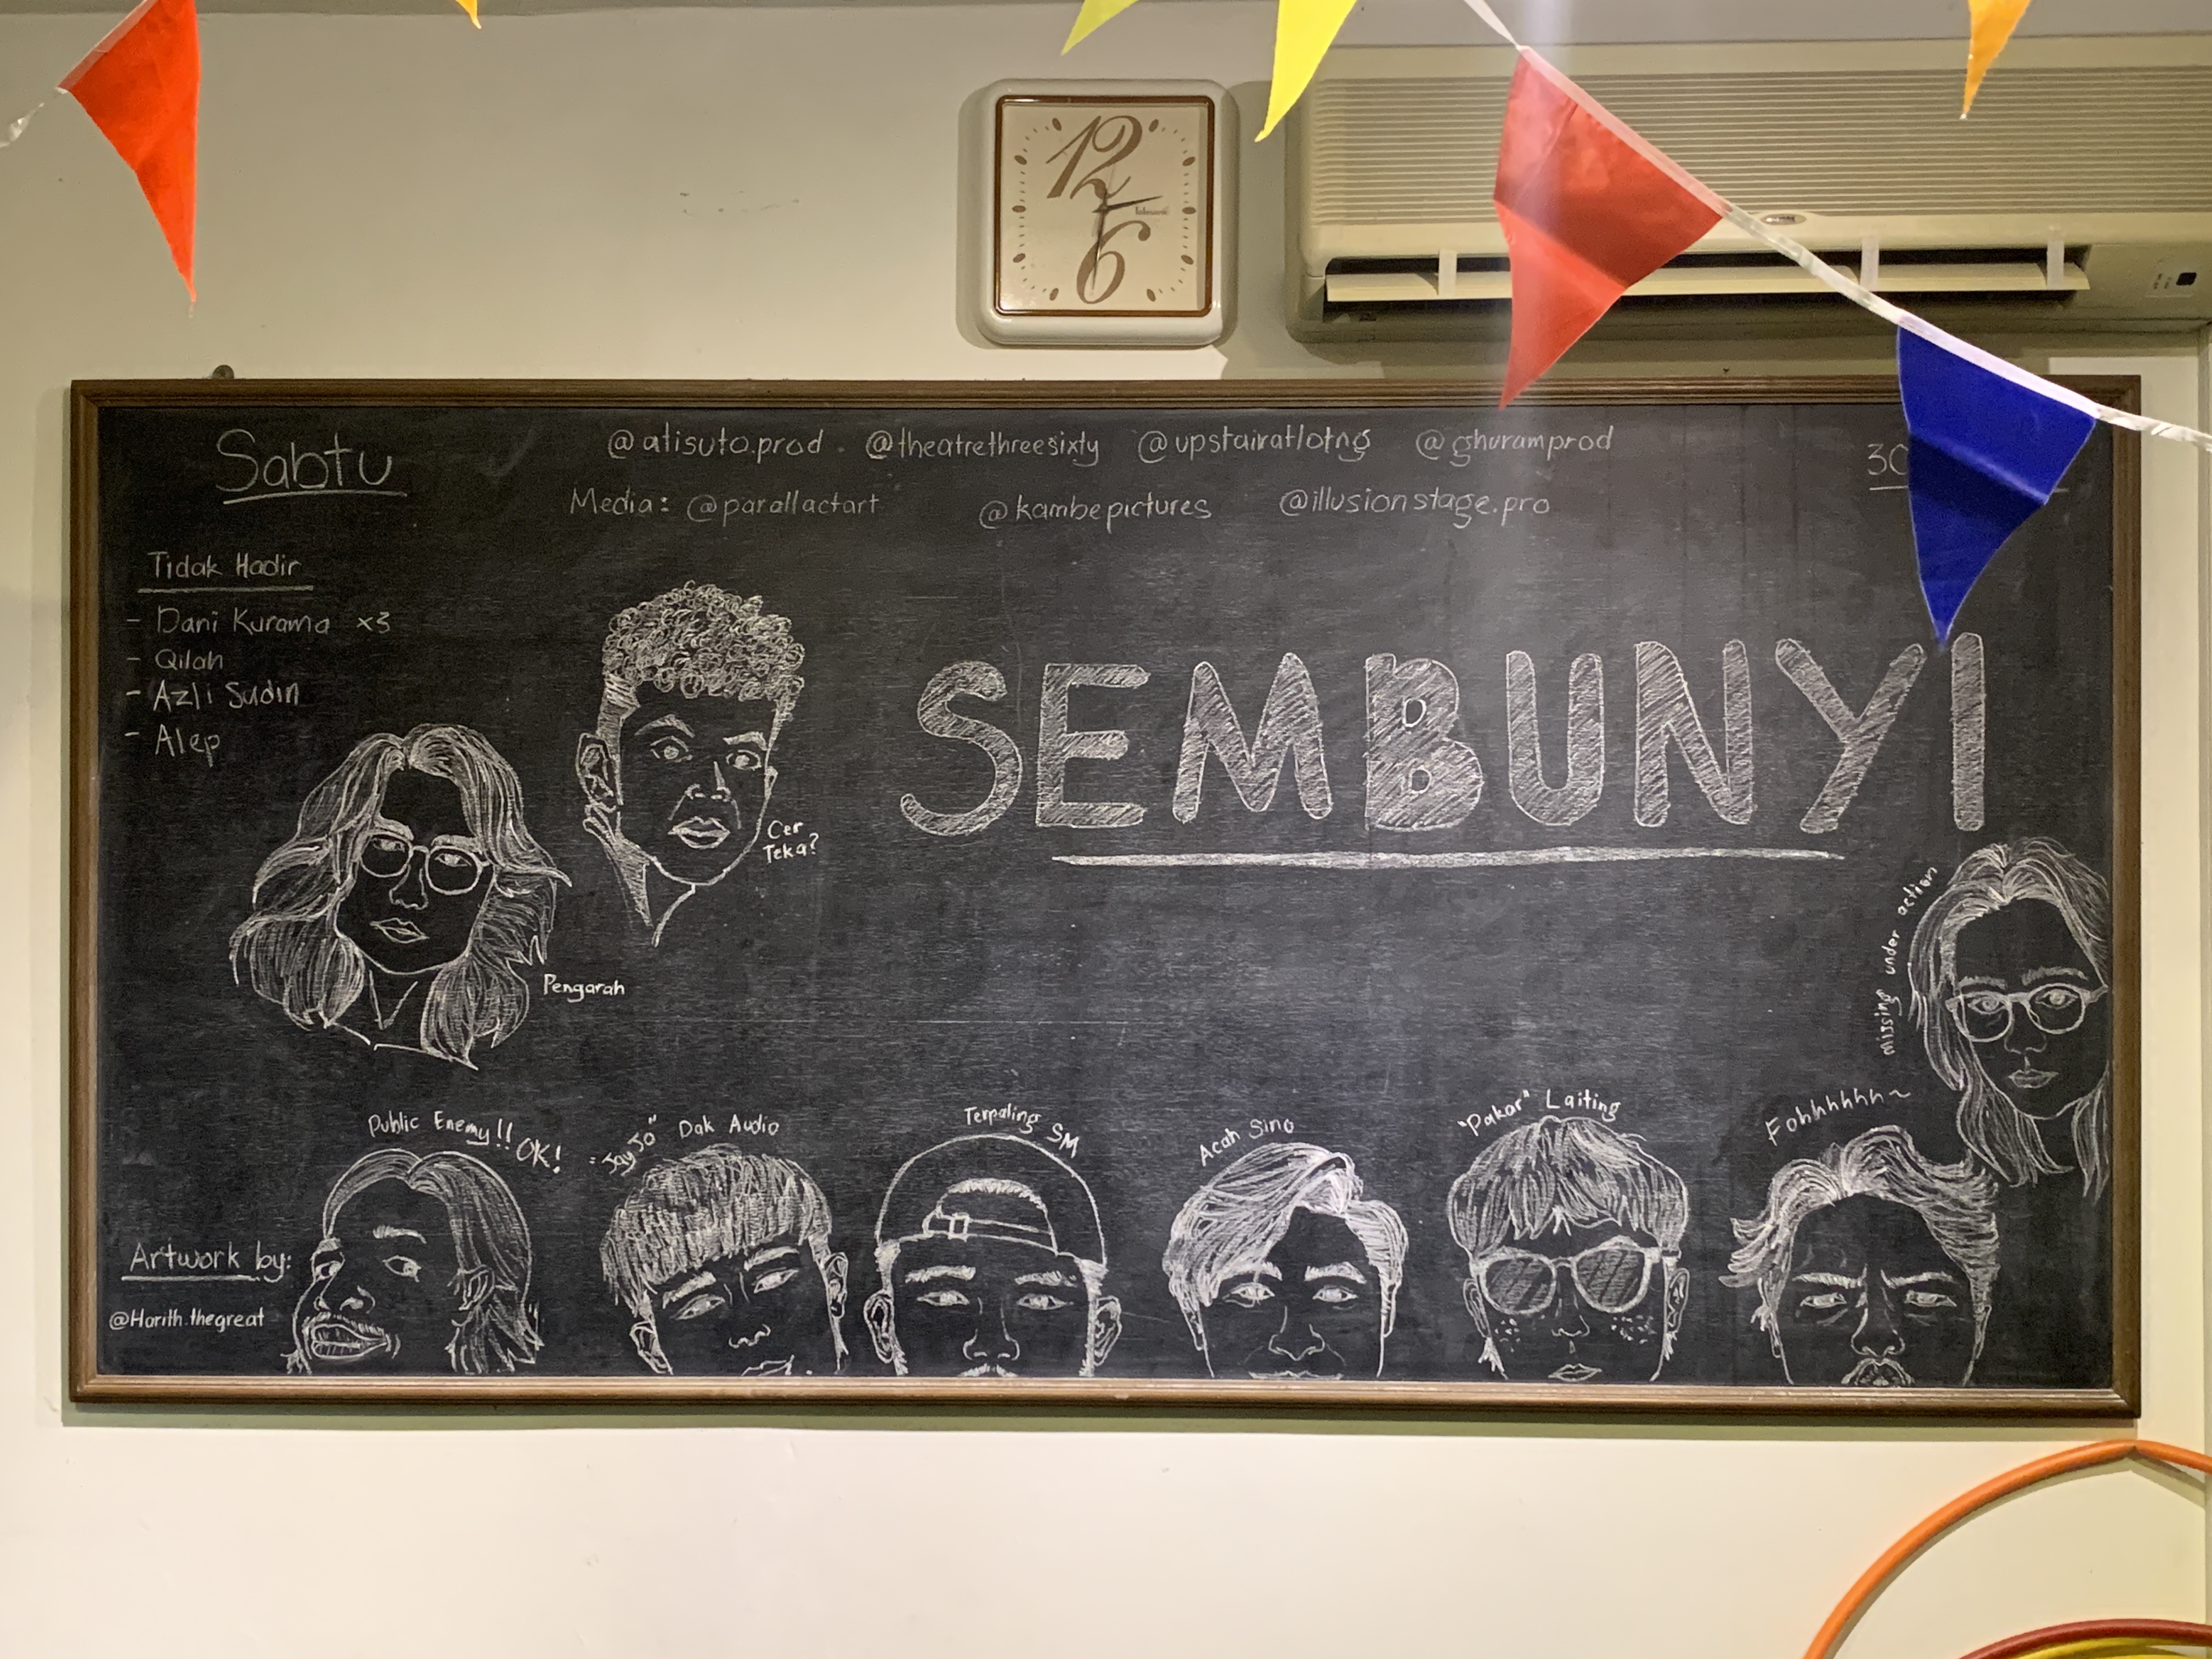 12
6
Sabtu
@atisuto.prod . @theatrethreesixty @upstairatlotng @gshuramprod
30
Media: @parallactart @kambepictures @illusionstage.pro
Tidak Hadir
- Dani Kurama x3
- Qilah
- Azli Sudin
- Alep
SEMBUNYI
Cer
Teka?
Pengarah
missing under action
Public Enemy!! OK!
"Jay Jo" Dak Audio
Terpaling SM
Acah Sino
"Pakar" Laiting
Fohhhhhh~
Artwork by:
@Harith.thegreat